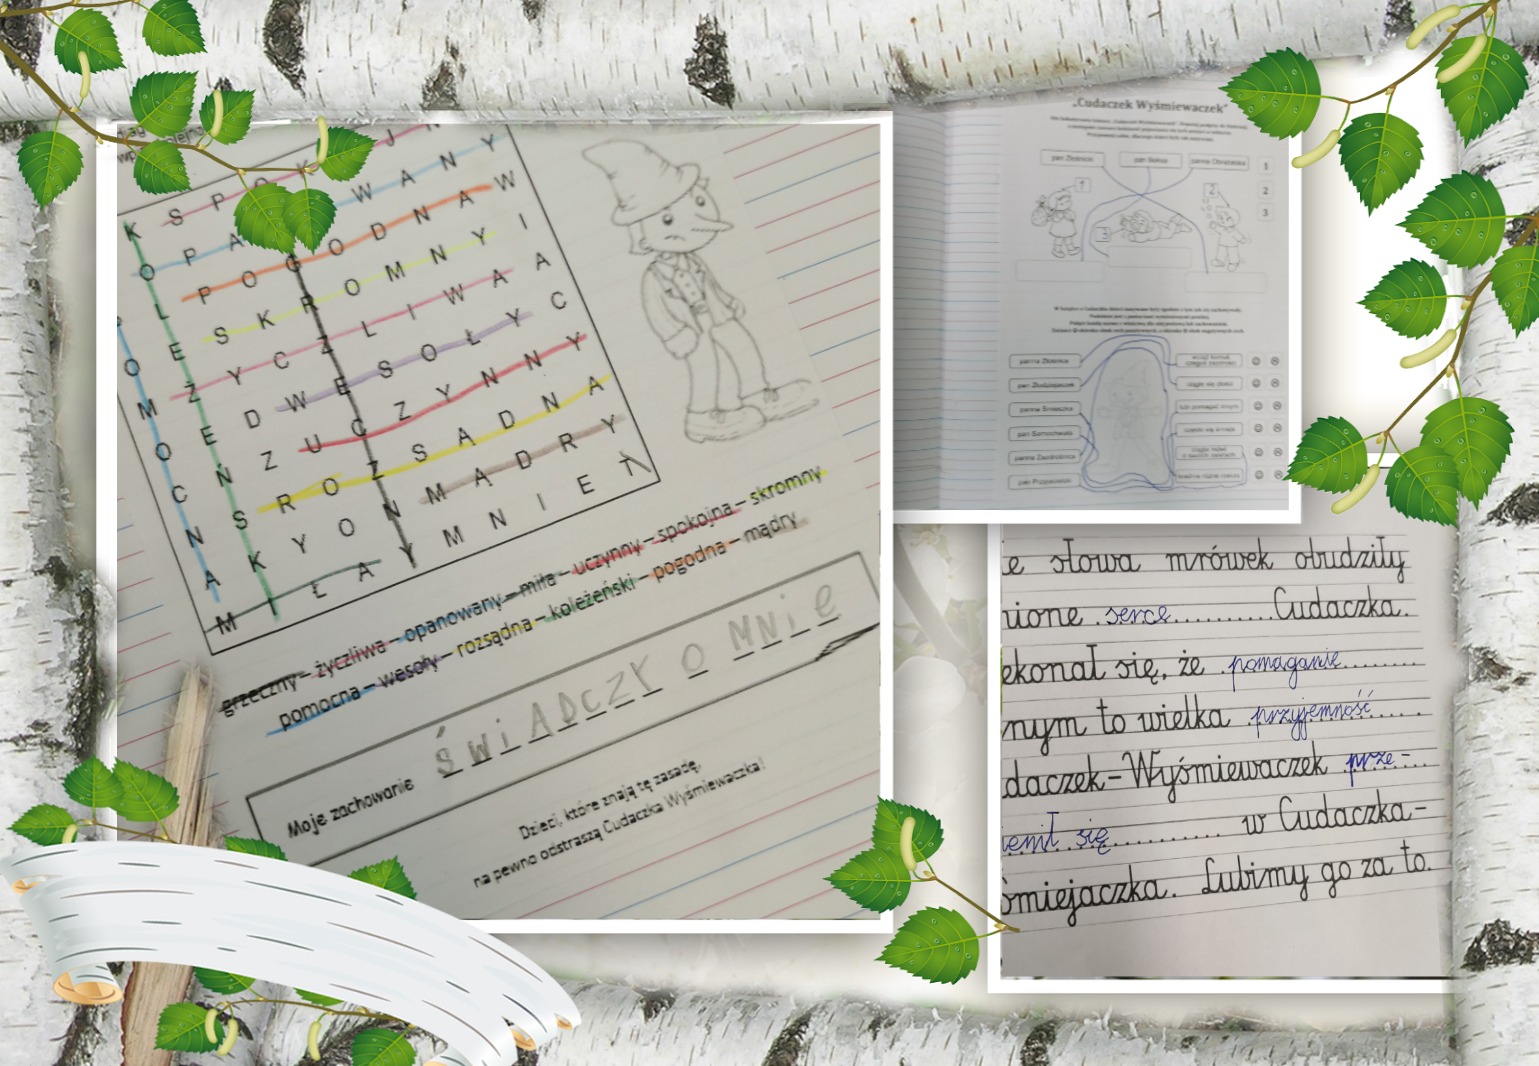 K S P O K J N
O P A W A N Y
L P O G O D N A W
E S K R O M N Y I
O Ż Y C Z L I W A A
M E D W E S O Ł Y C
O Ń Z U C Z Y N N Y
C S R O Z S A D N A
N K Y O N M Ą D R Y
A I Ł A Y M N I E T
M
grzeczny – życzliwa – opanowany – miła – uczynny – spokojna – skromny
pomocna – wesoły – rozsądna – koleżeński – pogodna – mądry
Moje zachowanie ŚWiADCZY O MNiE
Dzieci, które znają tę zasadę,
na pewno odstraszą Cudaczka Wyśmiewaczka!
„Cudaczek Wyśmiewaczek”
pan Złośnicki pan Beksa panna Obrażalska 1
1 2 2
3 3
panna Złośnica
pan Złodziejaszek
panna Śmieszka ciągle się złości
pan Samochwała lubi pomagać innym
panna Zazdrośnica często się śmieje
pan Przyjacielski
e słowa mrówek obudziły
nione serce Cudaczka.
ekonał się, że pomaganie
nym to wielka przyjemność
daczek-Wyśmiewaczek prze-
ienił się w Cudaczka-
śmiejaczka. Lubimy go za to.